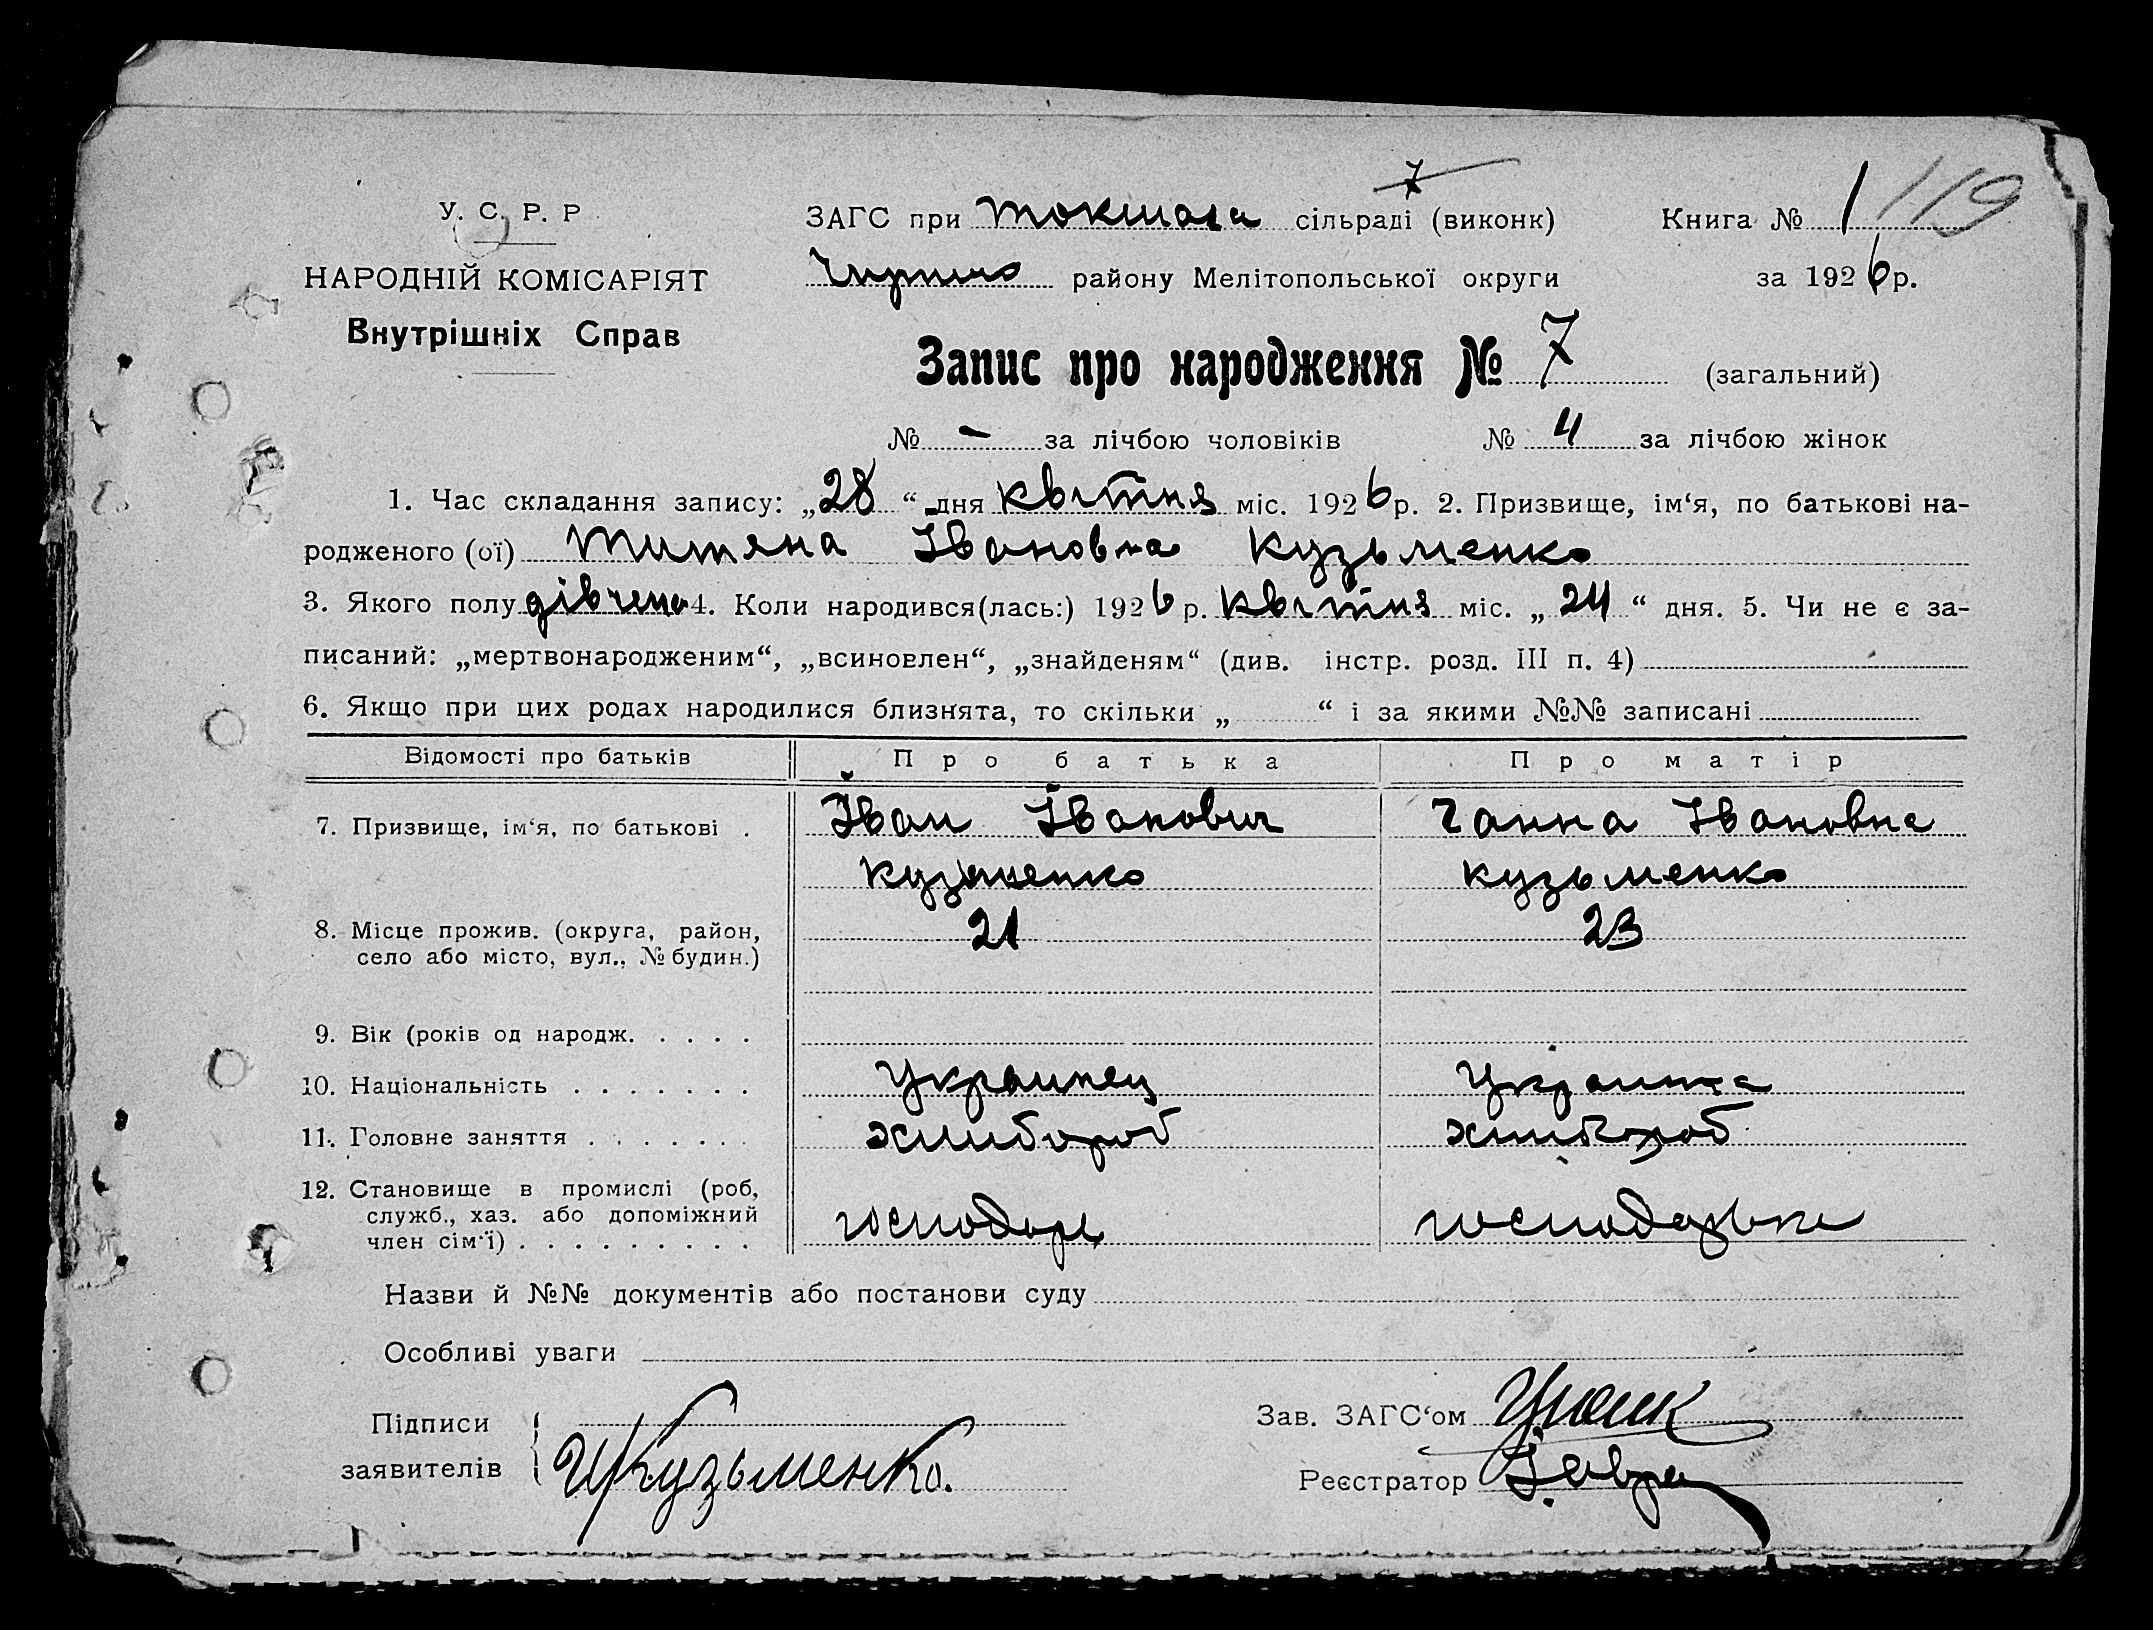 7
У. С. Р. Р
ЗАГС при сільраді (виконк)
Книга № 1 119
НАРОДНІЙ КОМІСАРІЯТ
району Мелітопольської округи
за 1926 р.
Внутрішніх Справ
Запис про народження № 7 (загальний)
№ - за лічбою чоловіків № 4 за лічбою жінок
1. Час складання запису: „28“ дня квітня міс. 1926 р. 2. Призвище, ім‘я, по батькові на-
родженого (ої) Титяна Івановна Кузьменко
3. Якого полу дівчена 4. Коли народився(лась:) 1926 р. квітня міс. „24“ дня. 5. Чи не є за-
писаний: „мертвонародженим“, „всиновлен“, „знайденям“ (див. інстр. розд. III п. 4)
6. Якщо при цих родах народилися близнята, то скільки „ “ і за якими №№ записані
Відомості про батьків Про батька Про матір
7. Призвище, ім‘я, по батькові . Іван Іванович Ганна Івановна
Кузьменко Кузьменко
8. Місце прожив. (округа, район, 21 23
село або місто, вул., № будин.)
9. Вік (років од народж. . . . .
10. Національність . . . . . . . Украинец Украинка
11. Головне заняття . . . . . . . хлибороб хлибороб
12. Становище в промислі (роб,
служб., хаз. або допоміжний господарь господарька
член сім‘ї) . . . . . . . . .
Назви й №№ документів або постанови суду
Особливі уваги
Підписи
Зав. ЗАГС‘ом
заявителів И Кузьменко.
Реєстратор